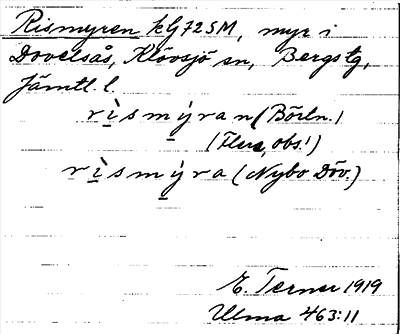 Rismyren klj 72 SM, myr i
Dovelsås, Klövsjö sn, Bergs tg,
Jämtl. l.
rìsmýran (Börln.)
(Flera, obs!)
rìsmýra (Nybo Döv.)
E. Terner 1919
Ulma 463:11